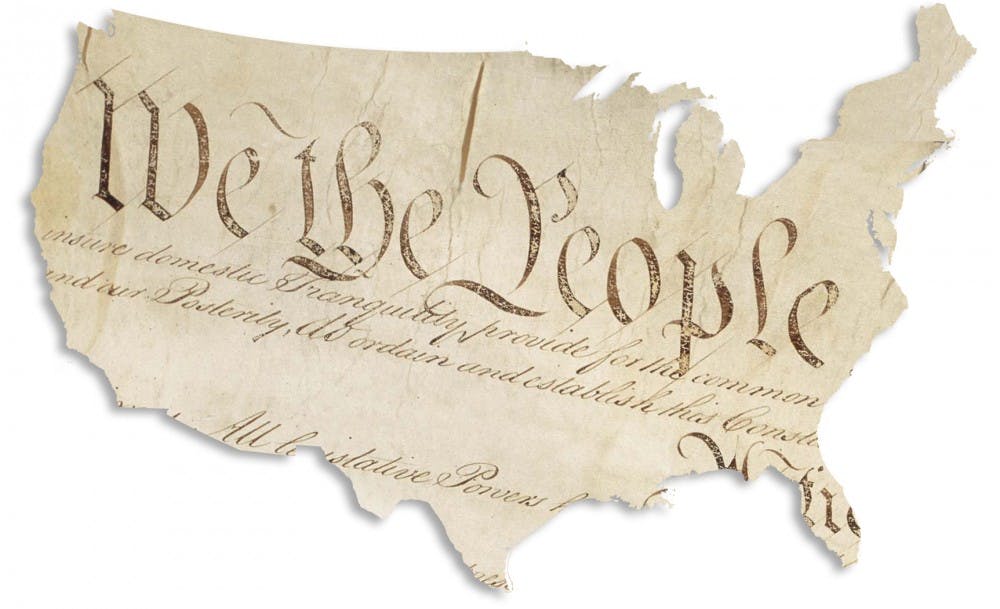 We the People
insure domestic Tranquility, provide for the common
and our Posterity, do ordain and establish this Const
All Legislative Powers h